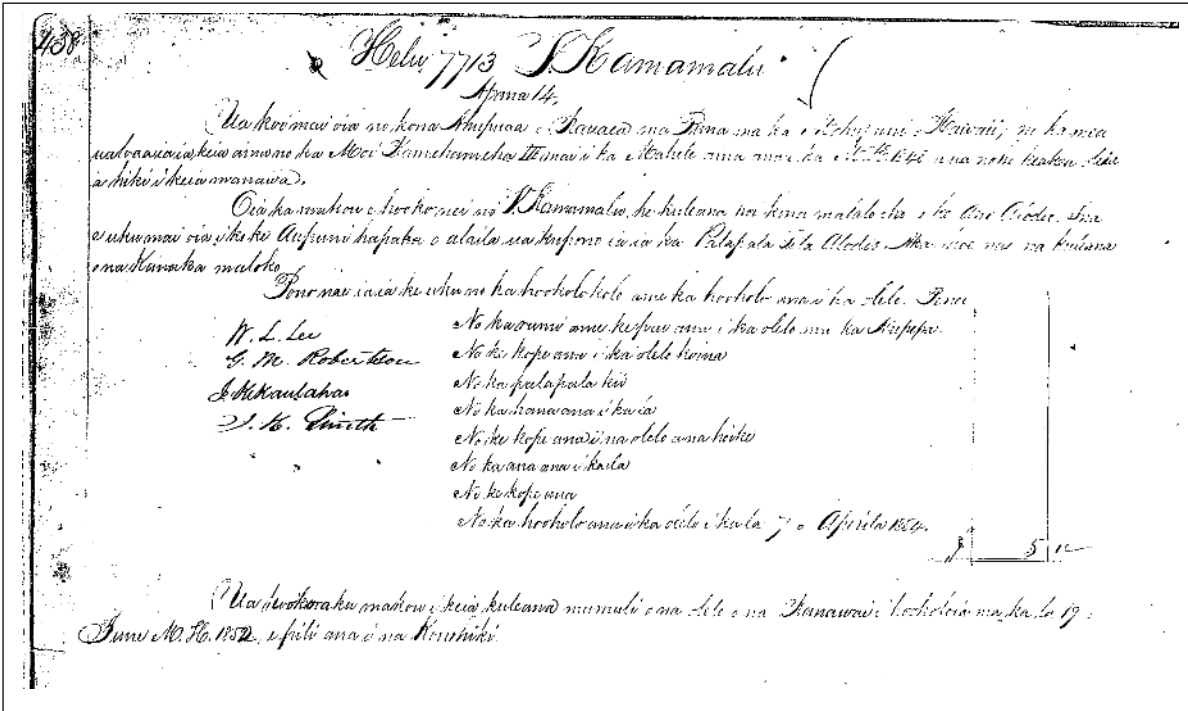 438
Helu 7713 V. Kamamalu
Apana 14.
Ua koi mai oia no kona Ahupuaa o ma Puna ma ka Mokupuni o Hawaii; no ka mea
ua loaa ia ia keia aina no ka Moi Kamehameha III mai i ka Mahele ana ma ka M. H. 1848 a ua noho
a hiki i keia manawa.
Oia ka makou e hooko nei no V. Kamamalu, he kuleana no kona malalo iho o ke Ano Alodio. Ina
e uku mai oia i ke ke Aupuni hapakolu alaila ua kupono ia ia ka Palapala Sila Alodio. Aka koe nae na kuleana
o na Kanaka maloko.
Pono nae ia ia ke uku no ka hookolokolo ame ka hooholo ana i ka olelo. Penei
W. L. Lee
G. M. Robertson
J. Kekaulahao
J. H. Smith
No ka ume ame ke pai ana i ka olelo ma ka Nupepa.
No ke kope ana i ka olelo hoina
No ka palapala kii
No ka hana ana i kaia
No ke kope ana i na olelo a na hoike
No ka ana ana i kaila
No ke kope ana
No ka hooholo ana i ka olelo i ka la 7 o Aperila 1854.
$ 5
Ua hookoia ku makou i keia kuleana mamuli o na olelo o na Kanawai i hooholoia ma ka la 19
June M. H. 1852, e pili ana i na Konohiki.